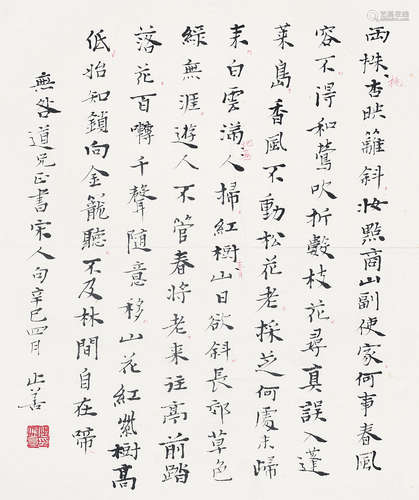 兩株杏映籬斜妝點商山副使家何事春風
桃
容不得和鶯吹折數枝花尋真誤入蓬
萊島香風不動松花老採芝何處未歸
來白雲滿人掃紅樹山日欲斜長郊草色
地無
綠無涯遊人不管春將老來往亭前踏
落花百囀千聲隨意移山花紅紫樹高
低始知鎖向金籠聽不及林間自在啼
無咎道兄正書宋人句辛巳四月 止善